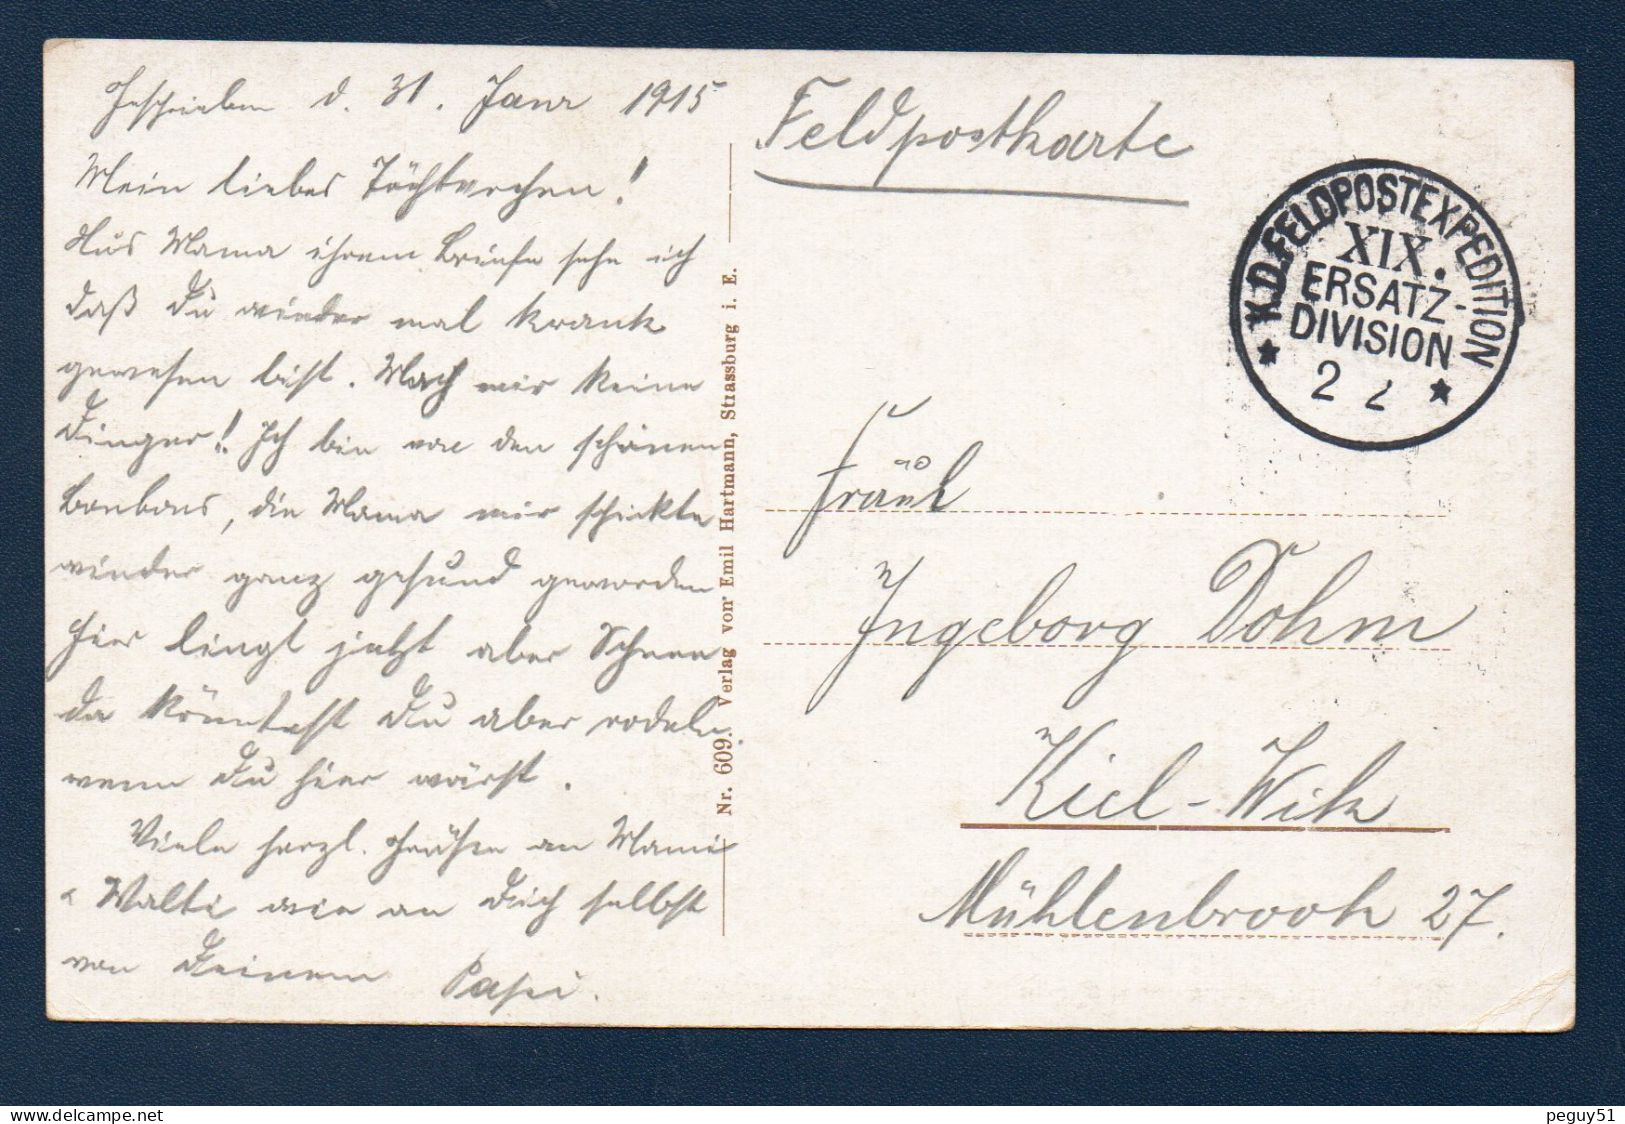 Geschrieben d. 31. Janr 1915
Mein liebes Töchterchen!
Aus Mama ihrem Briefe sehe ich
daß Du wieder mal krank
gewesen bist. Mach mir keine
Dinger! Ich bin von den schönen
Bonbons, die Mama mir schickte
wieder ganz gesund geworden
Hier liegt jetzt aber Schnee
da könntest Du aber rodeln
wenn Du hier wärst.
Viele herzl. Grüße an Mami
Walti wie an Dich selbst
von Deinem Papi.
Nr. 609. Verlag von Emil Hartmann, Strassburg i. E.
Feldpostkarte
K.D. FELDPOSTEXPEDITION
XIX.
ERSATZ-
DIVISION
2 2
Fräul
Ingeborg Dohm
Kiel-Wik
Mühlenbrook 27.
peguy51